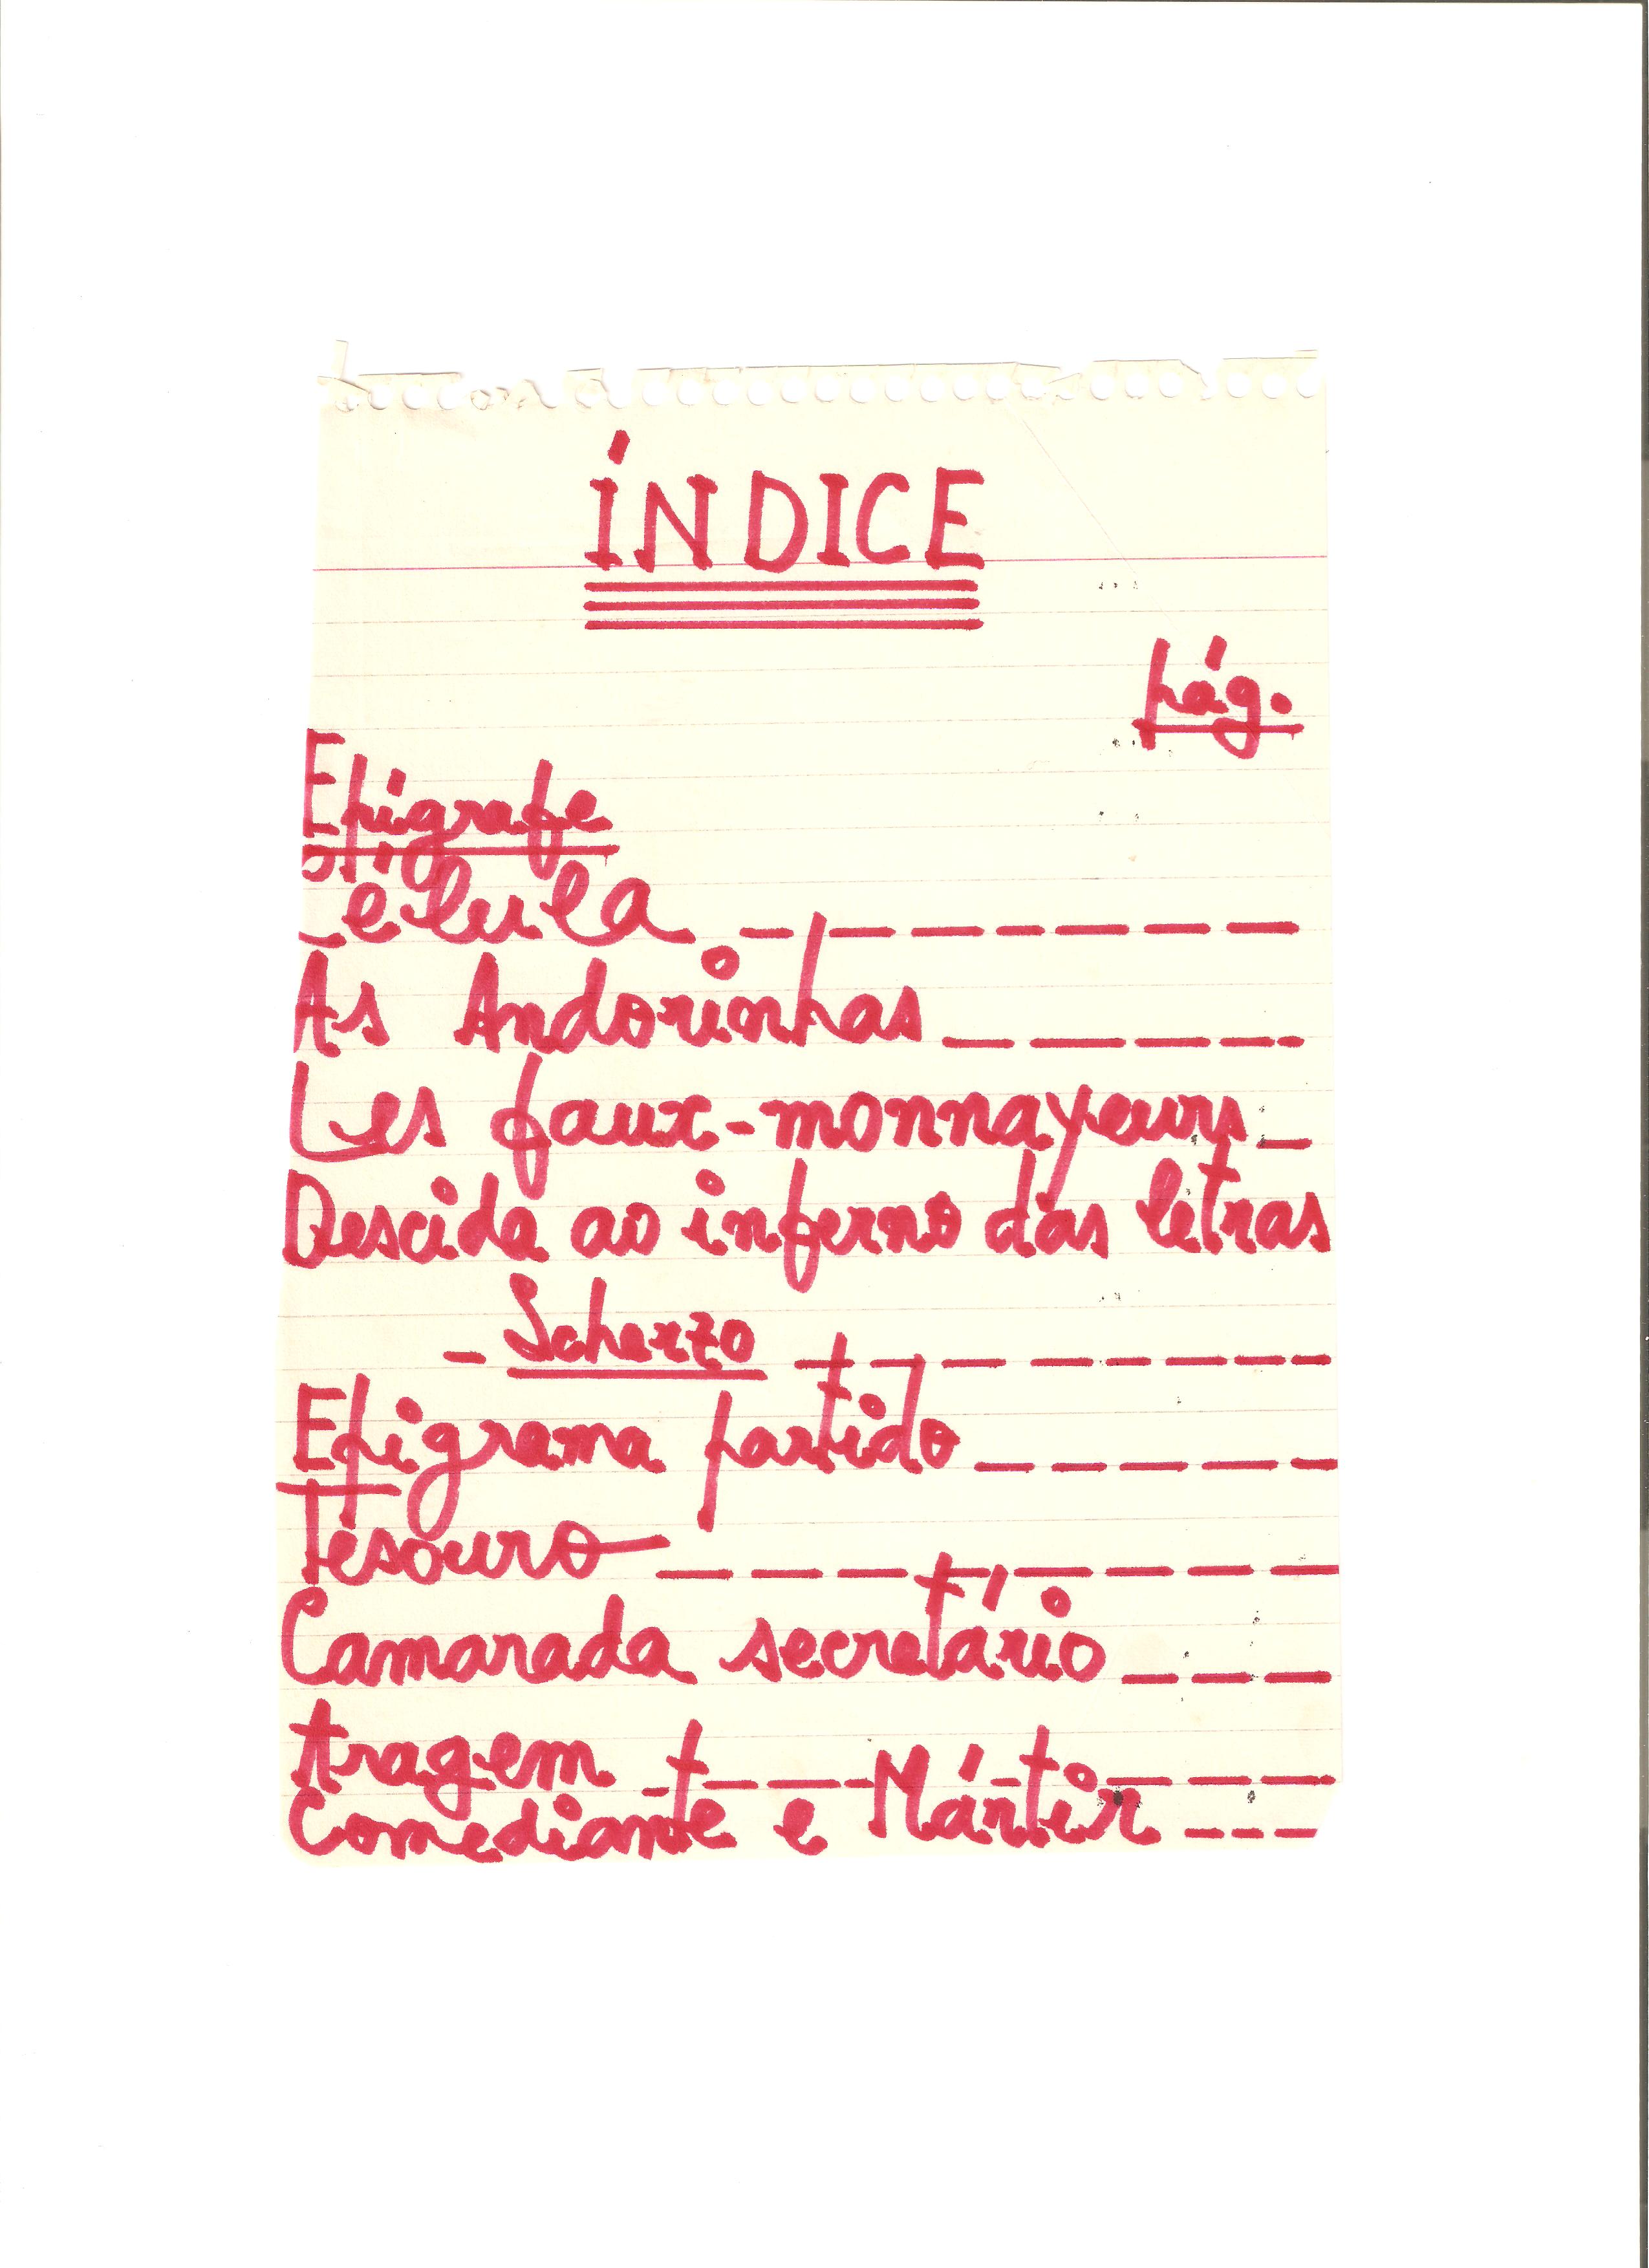 ÍNDICE
pág.
Epigrafe
Celula
As Andorinhas
Les faux-monnayeurs
Descida ao inferno das letras
- Scherzo
Epigrama partido
Tesouro
Camarada secretário
Aragem
Comediante e Mártir